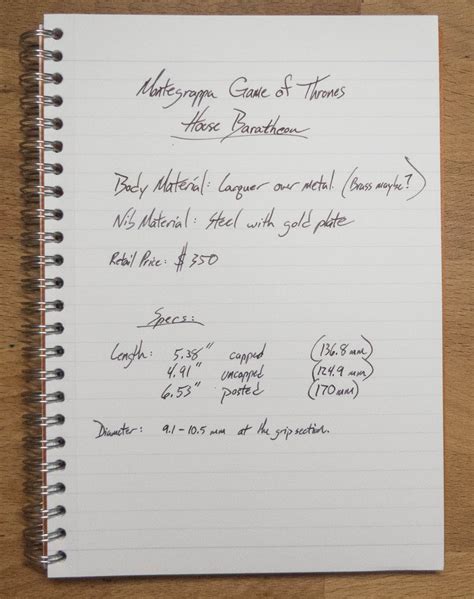 Montegrappa Game of Thrones
House Baratheon
Body Material: Lacquer over metal. (Brass maybe?)
Nib Material: Steel with gold plate
Retail Price: $350
Specs:
Length: 5.38" capped (136.8 mm)
4.91" uncapped (124.9 mm)
6.53" posted (170 mm)
Diameter: 9.1 - 10.5 mm at the grip section.